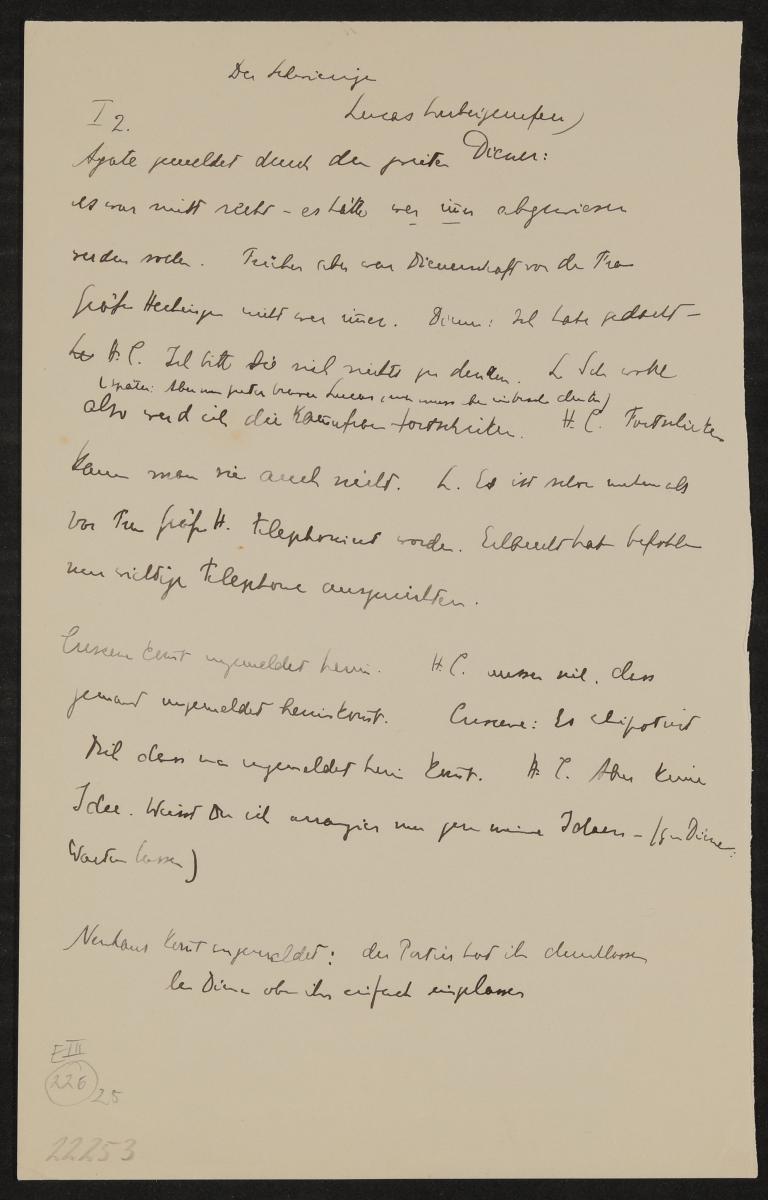 Der Schwierige
Lucas hereingerufen)
I 2.
Agate gemeldet durch den zweiten Diener:
es war nicht recht – es hätte wer imer abgewiesen
werden sollen. Früher aber war Dienerschaft von der Frau
Gräfin Hechingen nicht wer imer. Diener: Ich habe gedacht –
H. C. Ich bitte Sie sich nichts zu denken. L Ich wollte
(später: Aber mein guter braver Lucas, man muss denken)
also werd ich die Kamerfrau fortschicken. H. C. Fortschicken
kann man sie auch nicht. L. Es ist schon mehrmals
von Frau Gräfin H. telephoniert worden. Erlaucht hat befohlen
nur wichtige Telephone auszurichten.
Crescence komt ungemeldet herein. H. C. dass
jemand ungemeldet hereinkomt. Crescence: Es
Dich dass man ungemeldet herein komt. H. C. Aber keine
Idee. Weisst Du ich arrangier nur gern meine Ideen – (zum Diener:
Warten lassen)
Neuhaus komt ungemeldet: der Portier hat ihn durchlassen
der Diener oben ihn einfach eingelassen
E III
226
25
22253